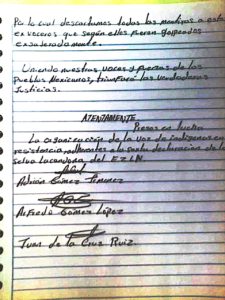 Por lo cual descartamos todas las mentiras a esta
exvoceros que según ellos fueron golpeados
exsaderadamente.
Uniendo nuestras voces y fuerzas de los
Pueblos Mexicanos, triunfará las verdaderas
Justicias.
ATENTAMENTE.
Presos en lucha
La organización de la voz de indígenas en
resistencia, adherentes a la sexta declaración de la
selva Lacandona, del EZLN.
Adrián Gómez Jiménez
Alfredo Gómez López
Juan de la Cruz Ruiz.